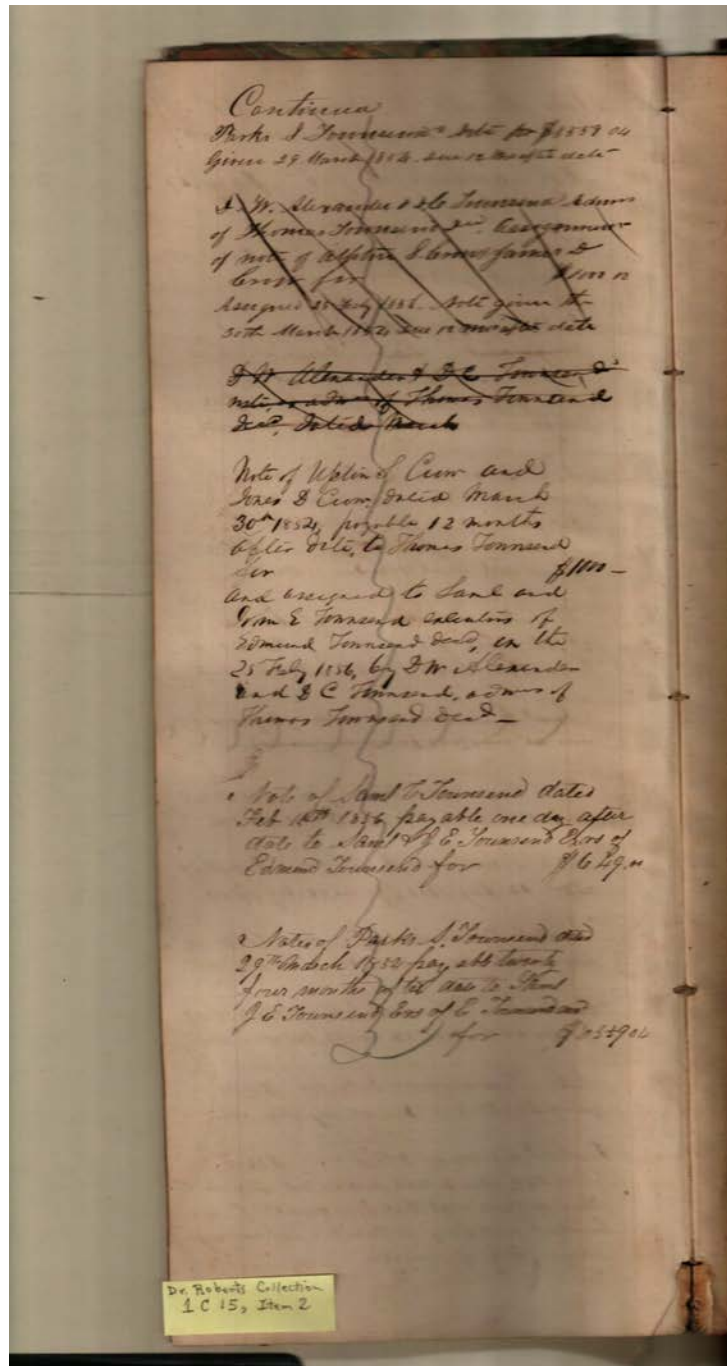 Continued
Parks S Townsend Note for $1559 04
Given 29 March 1854 due 12 months after date
D. W. Alexander & D C Townsend Admrs
of Thomas Townsend Decd. Assignment
of note of Crow James D
Crow for $1000 00
Assigned 25 Feby 1856. Note given the
30th March 1854 due 12 months after date
D W Alexander & D C Townsend
note, as admrs of Thomas Townsend
decd, dated March
Note of Crow and
James D Crow, dated March
30th 1854, payable 12 months
after date, to Thomas Townsend
for $1000 —
and assigned to Saml and
John E Townsend executors of
Edmund Townsend decd, on the
25 Feby 1856, by D W Alexander
and D C Townsend, admrs of
Thomas Townsend decd —
Note of Saml C Townsend dated
Feb 1856 payable one day after
date to Saml & J E Townsend Exrs of
Edmund Townsend for $649.00
Notes of Parks S. Townsend dated
29th March payable twenty
four months after date to Saml
J E Townsend Exrs of E Townsend
for 04
Dr. Roberts Collection
1 C 15, Item 2